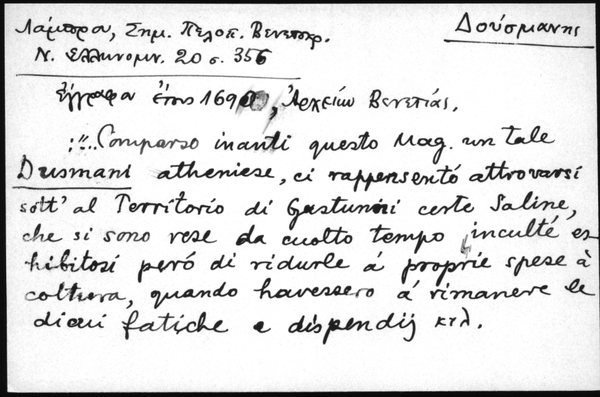 Δούσμανης
Λάμπρου, Σημ. Πελοπ. Βενετοκρ.
Ν. Ελληνομν. 20 σ. 356
Έγγραφα έτους 1690, Αρχείων Βενετίας.
:"..Comparso inanti questo Mag. un tale
Dusmani atheniese, ci rappensentó attrovarsi
sott' al Territorio di Gastunni certe Saline,
che si sono rese da molto tempo inculté ex
hibitosi peró di ridurle á proprie spese à
coltura, quando havessero á rimanere le
fatiche e dispendij κτλ.